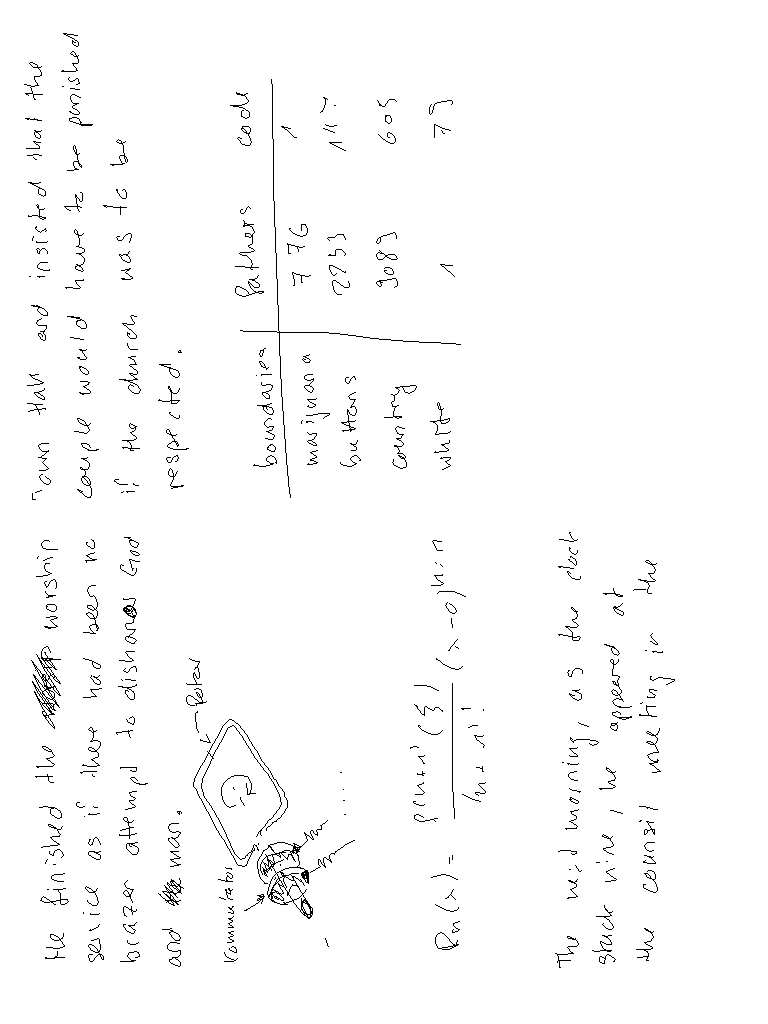 He finished the worship
service as if there had been no
brazen attempt to dishonor God
and man.
Rotor
Kommutator
Rn(x) = f(n+1)(ξ) / (n+1)! (x-a)n+1
The next morning, as the clock
struck nine, he appeared at
the counsil meeting in the
Town Hall and insisted that the
couple would have to be punished
if the church was to be
respected.
boundaries fathers code
marijuana 776 1
buttons
country 9089 605
white 1 79